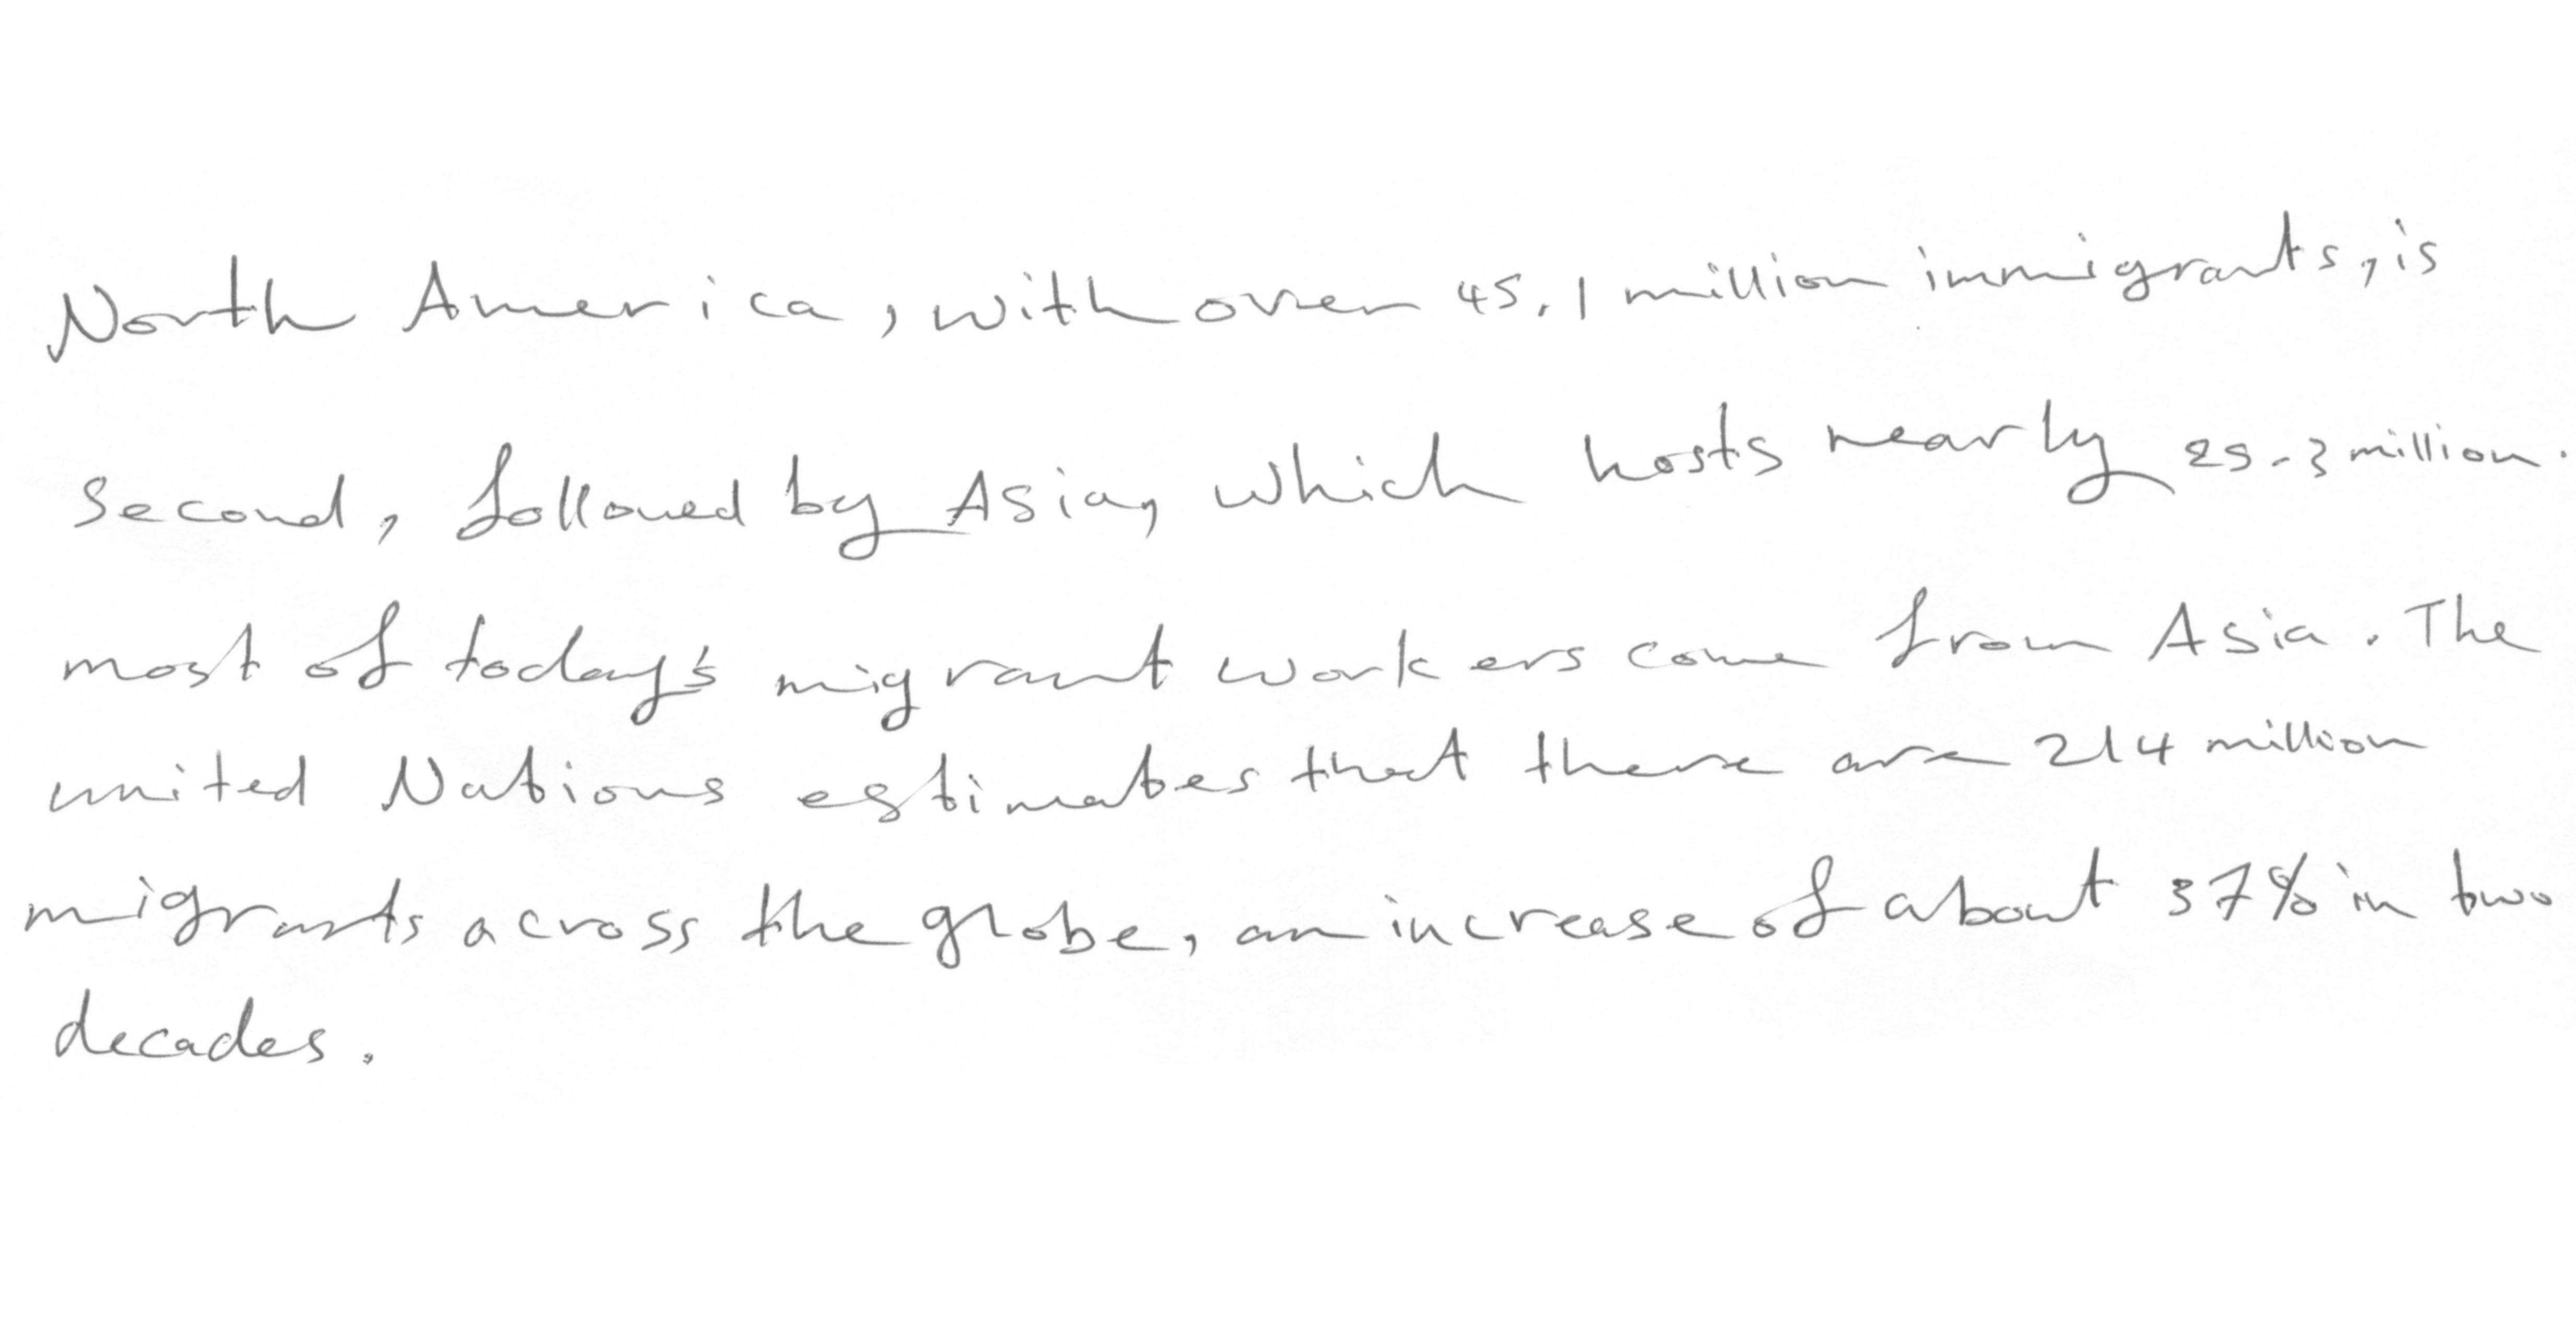 North America, with over 45.1 million immigrants, is
Second, followed by Asia, which hosts nearly 25.3 million.
most of today's migrant workers come from Asia. The
united Nations estimates that there are 214 million
migrants across the globe, an increase of about 37% in two
decades.